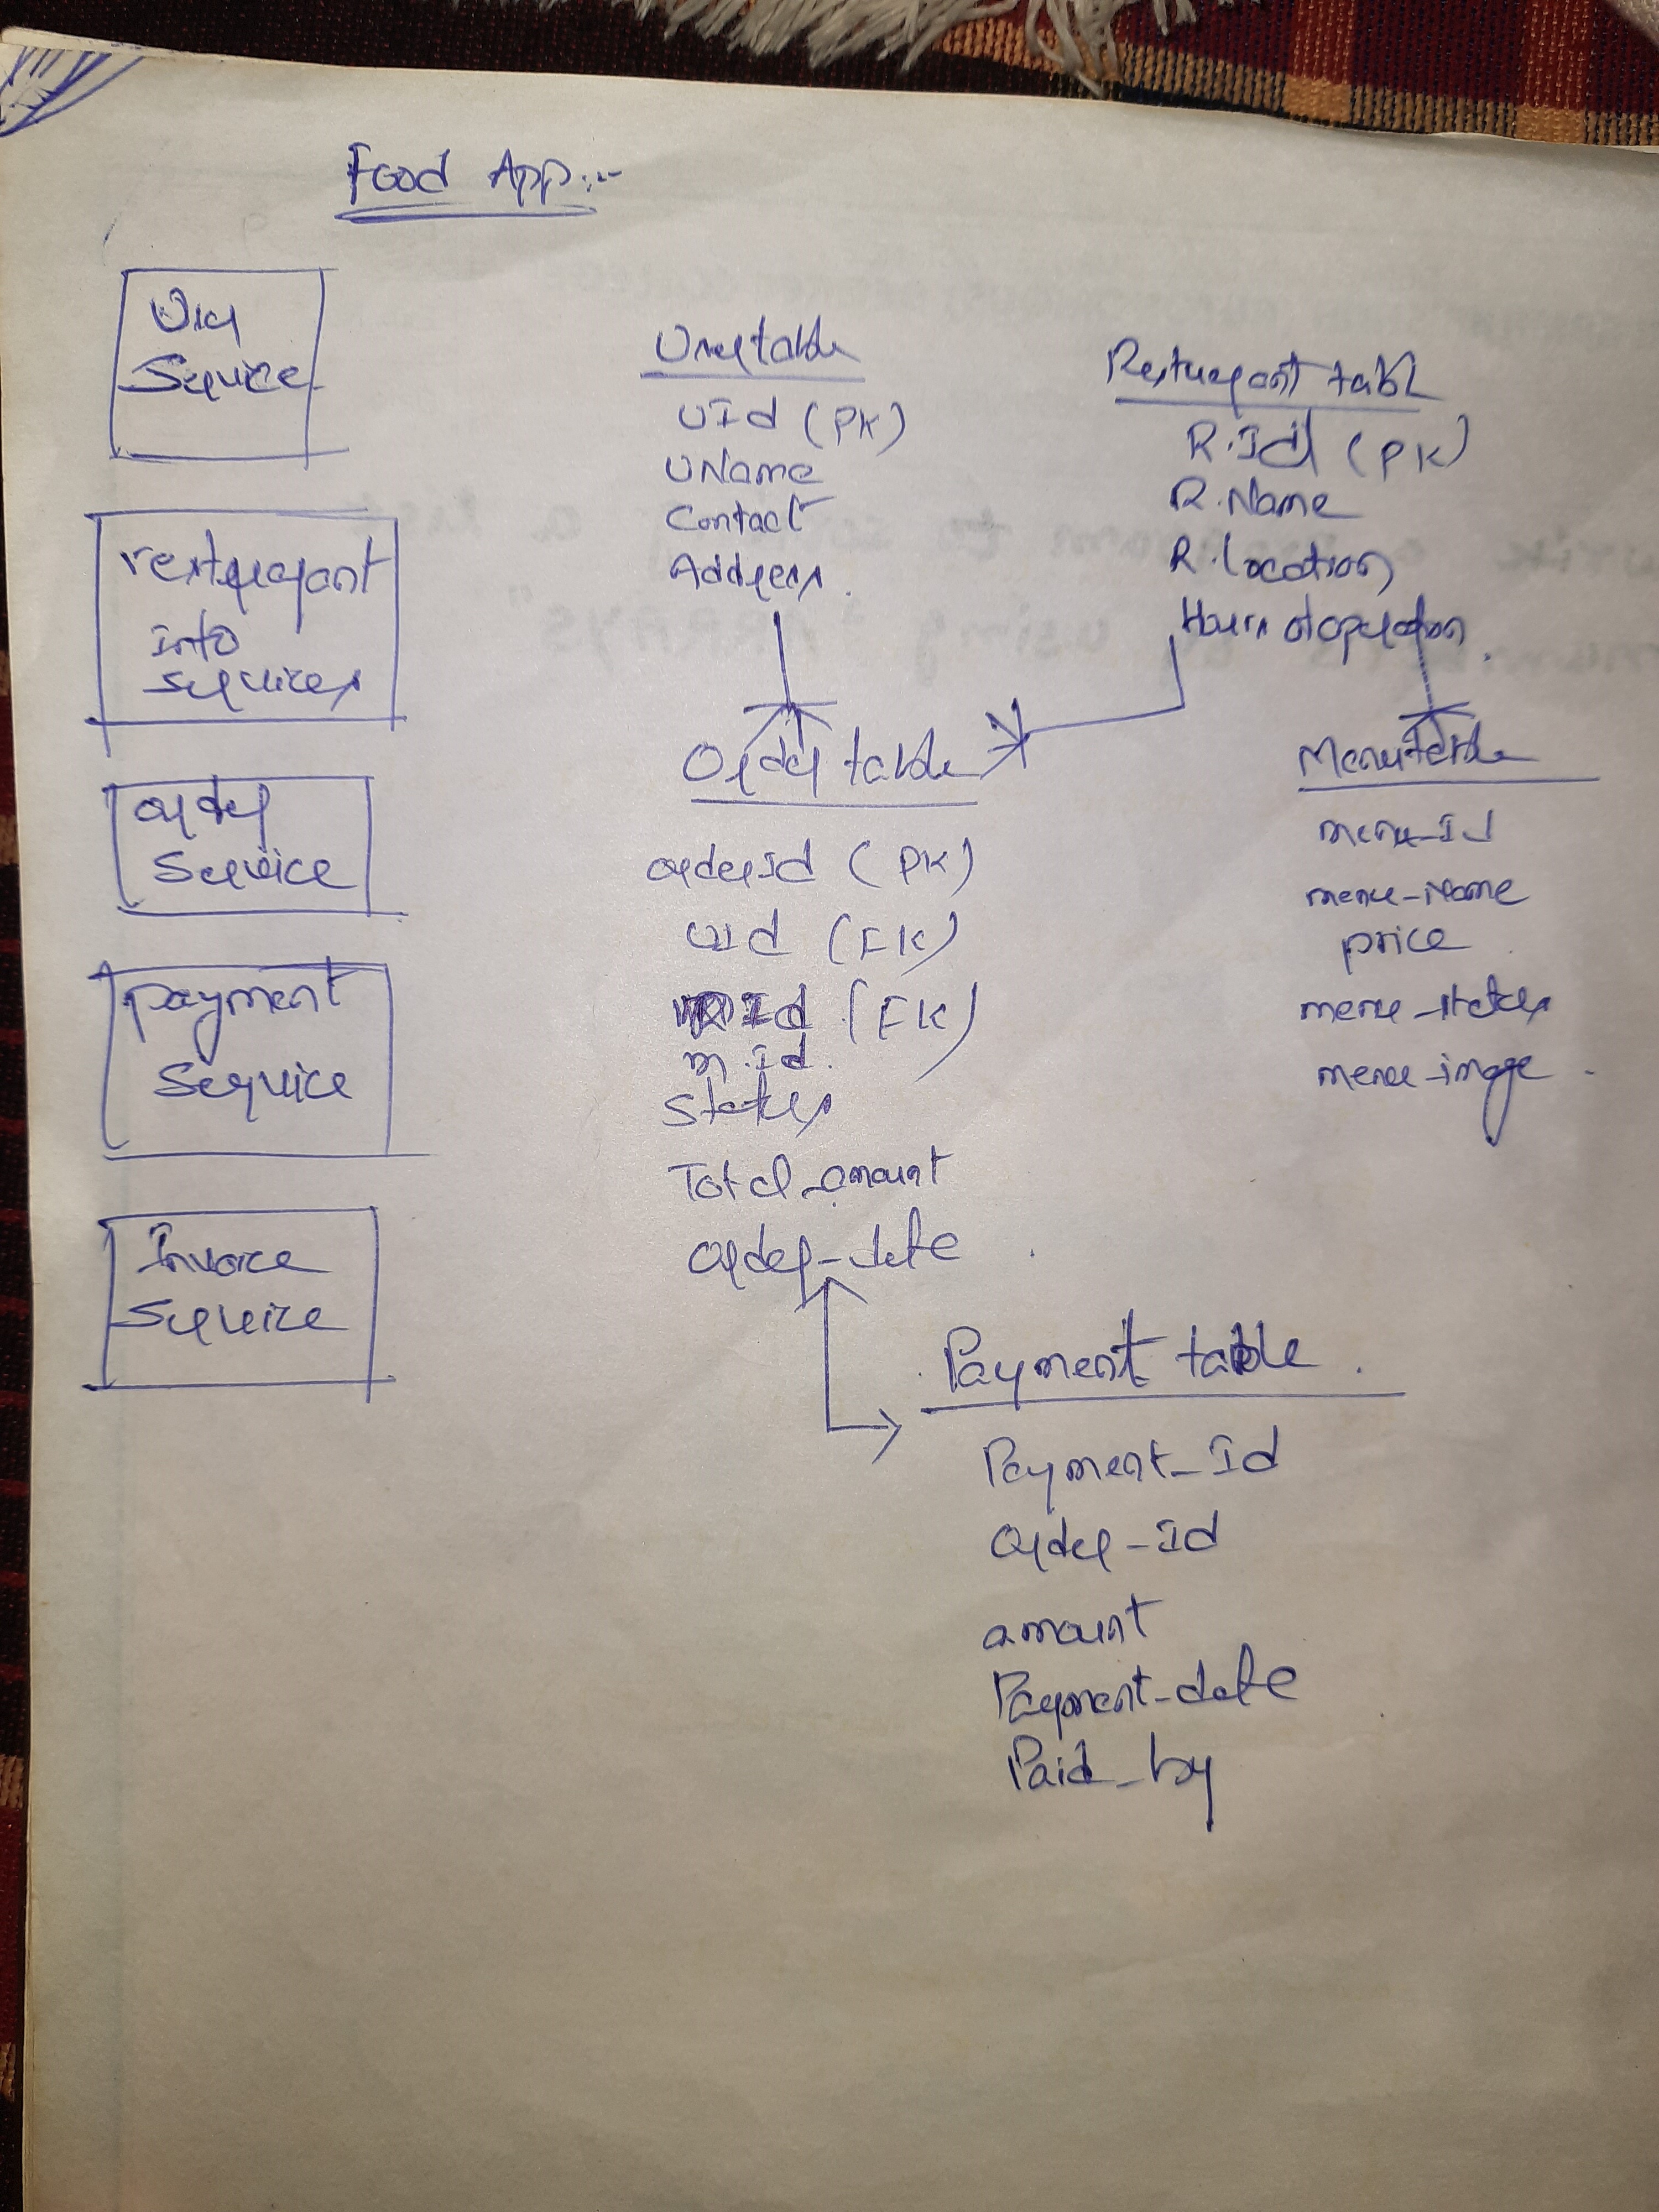 Food App:-
User
Service
restuerant
info
services
order
Service
payment
Service
Invoice
Service
User table
UId (PK)
UName
Contact
Address.
Resturant table
R.Id (PK)
R.Name
R.location
Hours of operation.
Order table
orderId (PK)
uId (FK)
Id (FK)
m.Id.
Status
Total_amount
order-date
Menu table
menu-Id
menu-Name
price
menu-status
menu-image
Payment table.
Payment-Id
order-Id
amount
Payment-date
Paid-by